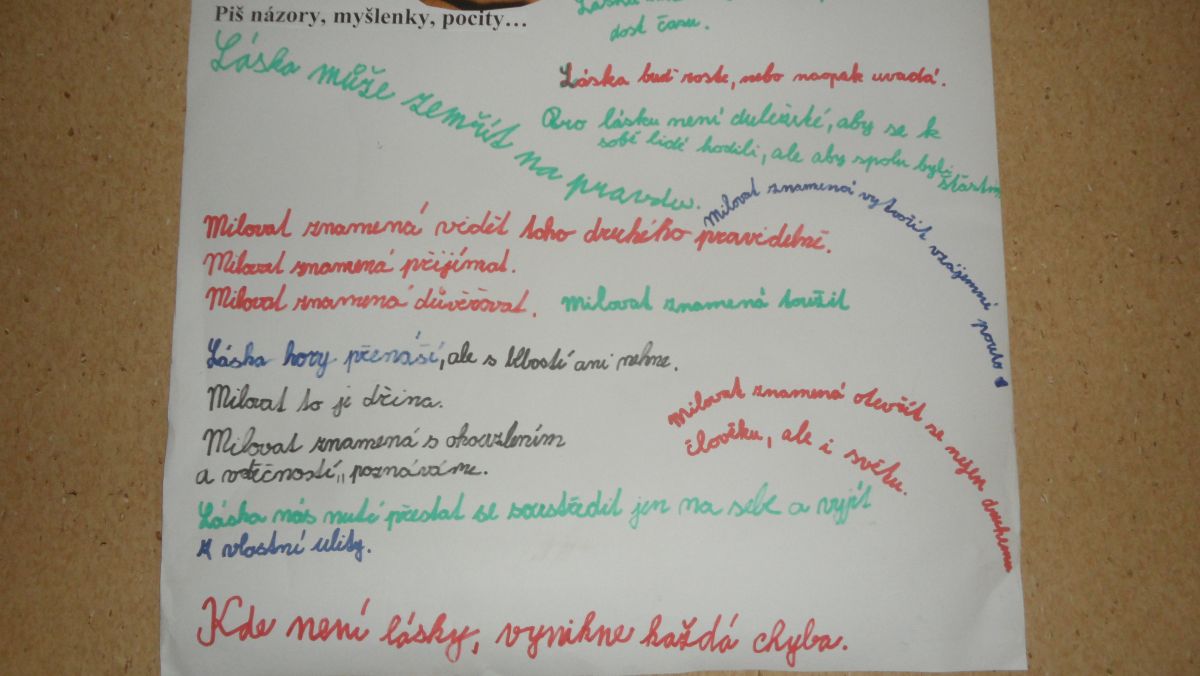 Piš názory, myšlenky, pocity...
dost času.
Láska může zemřít na pravdu.
Láska buď roste, nebo naopak uvadá.
Pro lásku není duležité, aby se k
sobě lidé hodili, ale aby spolu byli
šťastni
Milovat znamená vytvořit vzájemné pouto
Milovat znamená vidět toho druhého pravidelně.
Milovat znamená přijímat.
Milovat znamená důvěřovat.
Milovat znamená toužit
Láska hory přenáší, ale s blbostí ani nehne.
Milovat to je dřina.
Milovat znamená s okouzlením
a vděčností, poznáváme.
Milovat znamená otevřít se nejen druhému
člověku, ale i světu.
Láska nás nutí přestat se soustředit jen na sebe a vyjít
z vlastní ulity.
Kde není lásky, vynikne každá chyba.